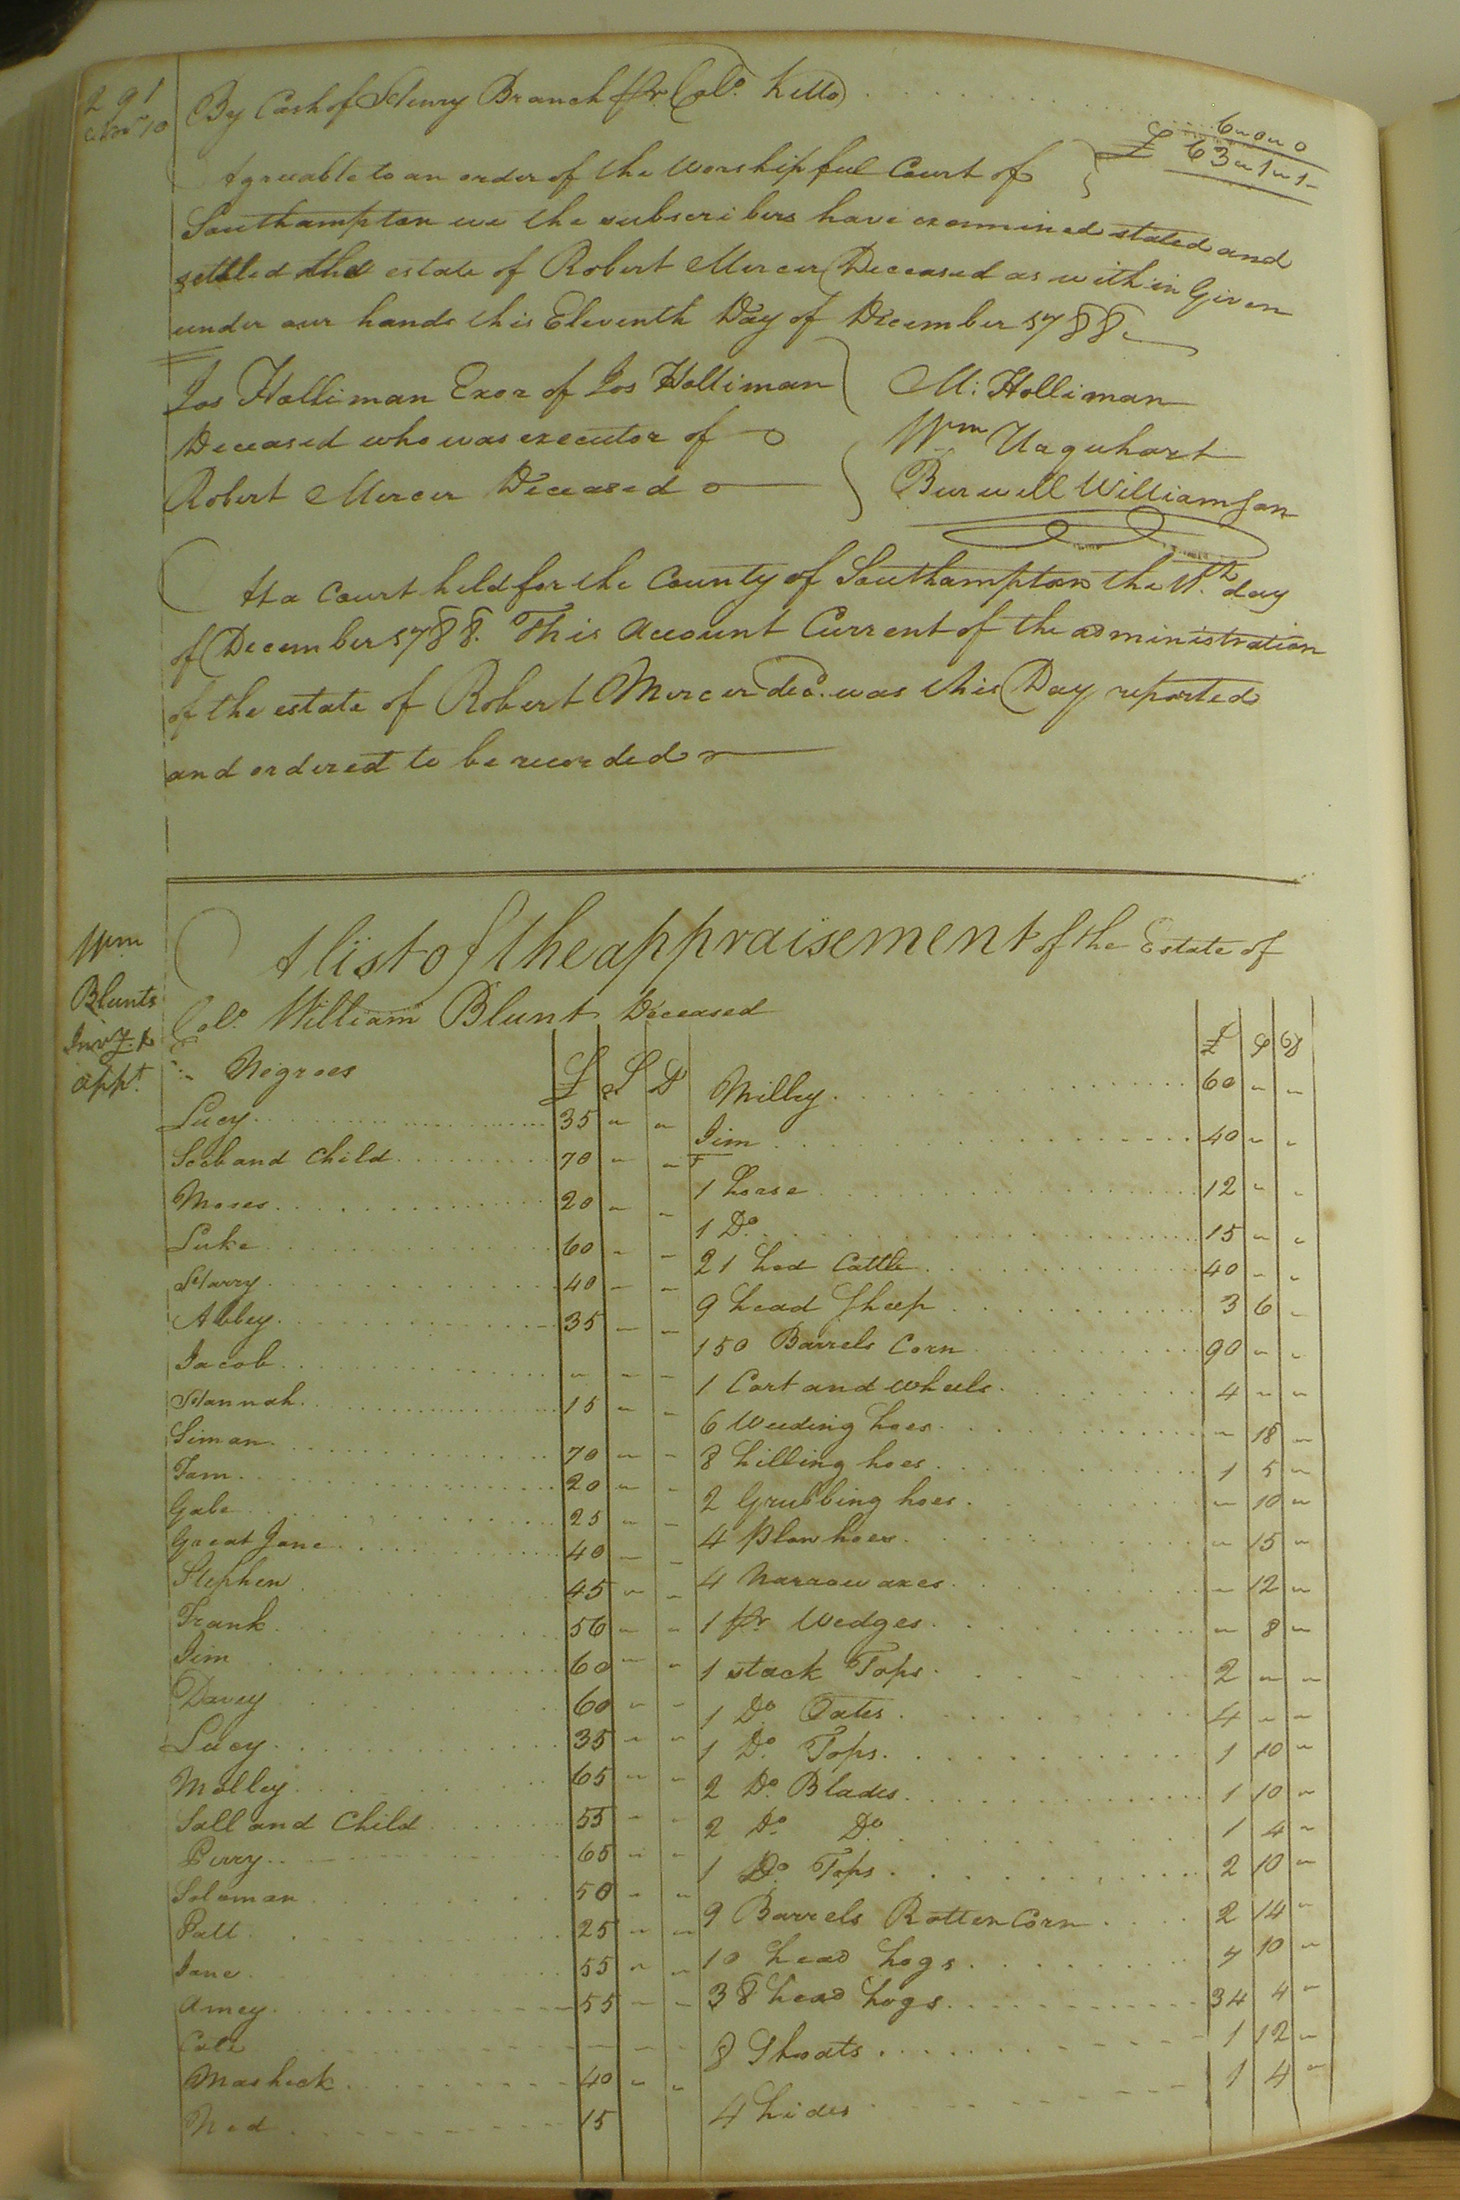 291
By Cash of Henry Branch pr Colo. Kello
6 " 0 " 0
£ 63 " 1 " 1
Agreeable to an order of the Worshipful Court of
Southampton we the subscribers have examined stated and
settled the estate of Robert Mercer Deceased as within Given
under our hands this Eleventh Day of December 1788
Jos Holliman Exor of Jos Holliman
Deceased who was executor of
Robert Mercer Deceased
M: Holliman
Wm Urquhart
Burwell Williamson
At a Court held for the County of Southampton the 11th. day
of December 1788. This Account Current of the administration
of the estate of Robert Mercer decd. was this Day reported
and ordered to be recorded
Wm
Blunts
Invy. &
appt.
A list of the appraisement of the Estate of
Colo. William Blunt Deceased
Negroes £ S D
Lucy 35 " "
Seeb and Child 70 " "
Moses 20 " "
Luke 60 " "
Harry 40 " "
Abbey 35 " "
Jacob " " "
Hannah 15 " "
Simon 70 " "
Tom 20 " "
Gabe 25 " "
Great Jane 40 " "
Stephen 45 " "
Frank 50 " "
Jim 60 " "
Davey 60 " "
Lucy 35 " "
Molley 65 " "
Sall and Child 55 " "
Perry 65 " "
Solomon 50 " "
Patt 25 " "
Jane 55 " "
Amey 55 " "
Cate " " "
Masheck 40 " "
Ned 15
£ S D
Milley 60 " "
Jim 40 " "
1 horse 12 " "
1 Do. 15 " "
21 hed Cattle 40 " "
9 head Sheep 3 6 "
150 Barrels Corn 90 " "
1 Cart and wheels 4 " "
6 Weeding hoes " 18 "
8 hilling hoes 1 5 "
2 Grubbing hoes " 10 "
4 Plow hoes " 15 "
4 Narrow axes " 12 "
1 pr Wedges " 8 "
1 stack Tops 2 " "
1 Do Oates 4 " "
1 Do. Tops 1 10 "
2 Do. Blades 1 10 "
2 Do. Do 1 4 "
1 Do. Tops 2 10 "
9 Barrels Rotten Corn 2 14 "
10 head hogs 4 10 "
38 head hogs 34 4 "
8 Shoats 1 12 "
4 hides 1 4 "